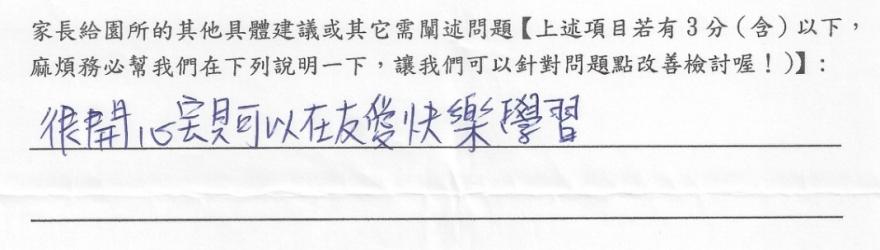 家長給園所的其他具體建議或其它需闡述問題【上述項目若有3分（含）以下，
麻煩務必幫我們在下列說明一下，讓我們可以針對問題點改善檢討喔！）】：
很開心寶貝可以在友愛快樂學習